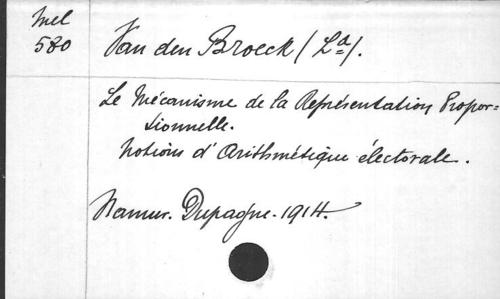 Mel
580
Van den Broeck (Ld).
Le Mécanisme de la Représentation Propor=
tionnelle.
Notions d'Arithmétique électorale.
Namur. Dupagne. 1914.